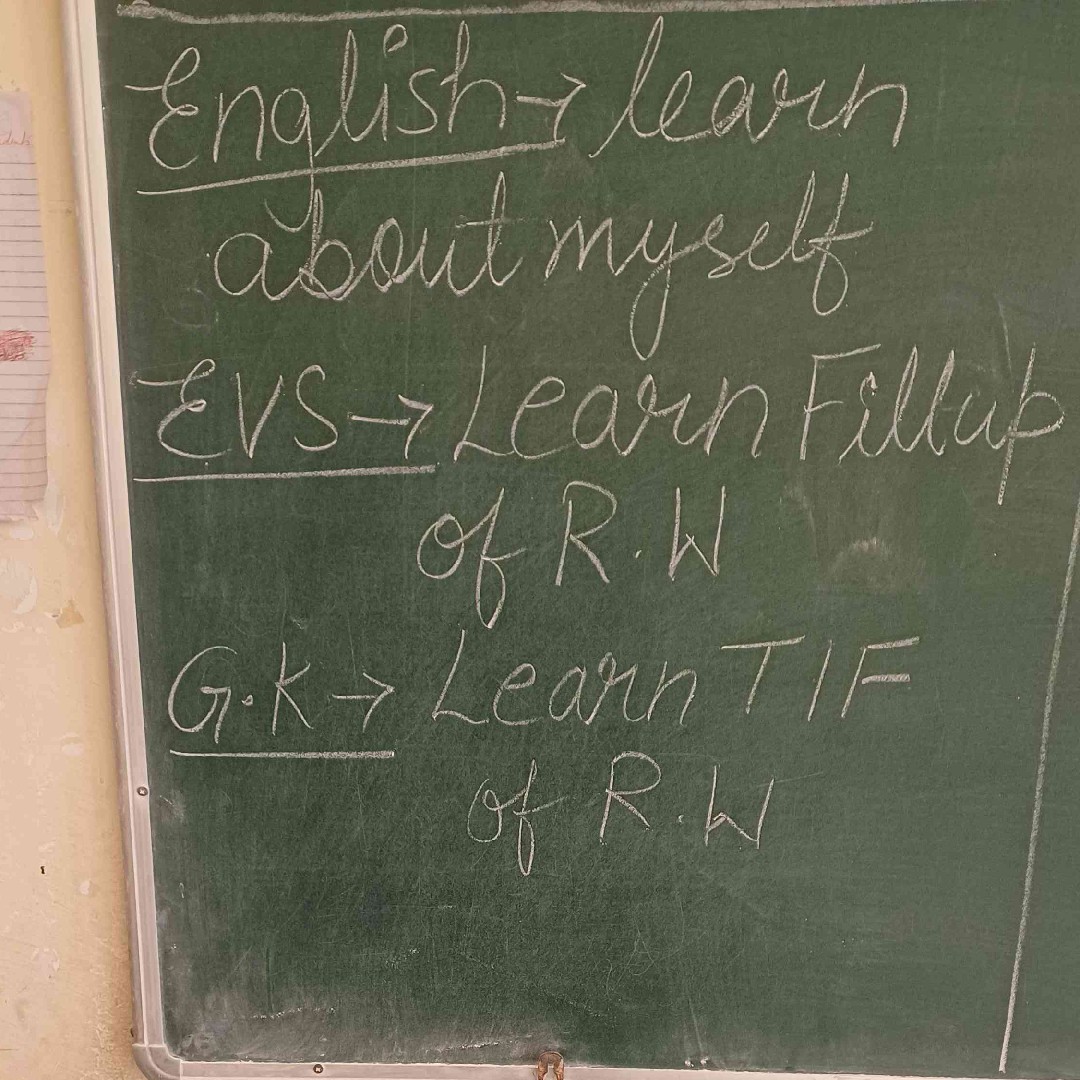 English → learn
about myself
EVS → Learn Fillup
of R.W
G.K → Learn T/F
of R.W